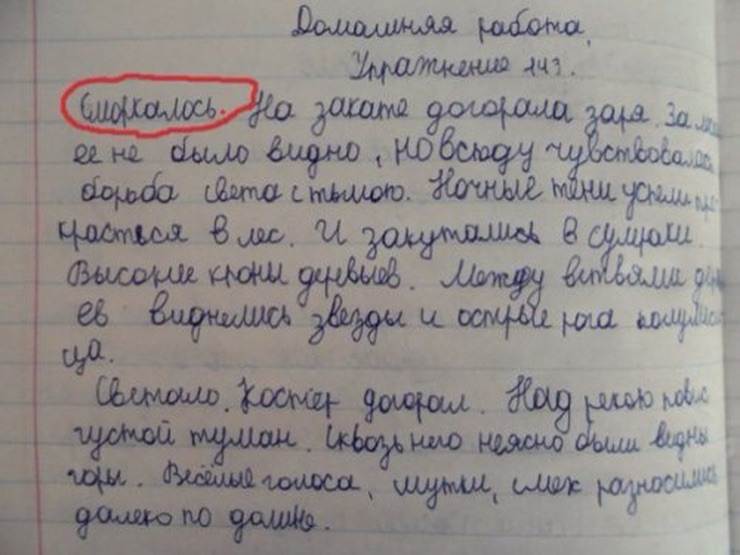 Домашняя работа.
Упражнение 143.
Сморкалось. На закате догорала заря. За
ее не было видно, но всюду чувствовалась
борьба света с тьмою. Ночные тени успели
красться в лес. И закутались в сумраки.
Высокие кроны деревьев. Между ветвями
ев виднелись звезды и острые рога полумеся
ца.
Светало. Костер догорал. Над рекою повис
густой туман. Сквозь него неясно были видны
горы. Весёлые голоса, шутки, смех разносились
далеко по долине.